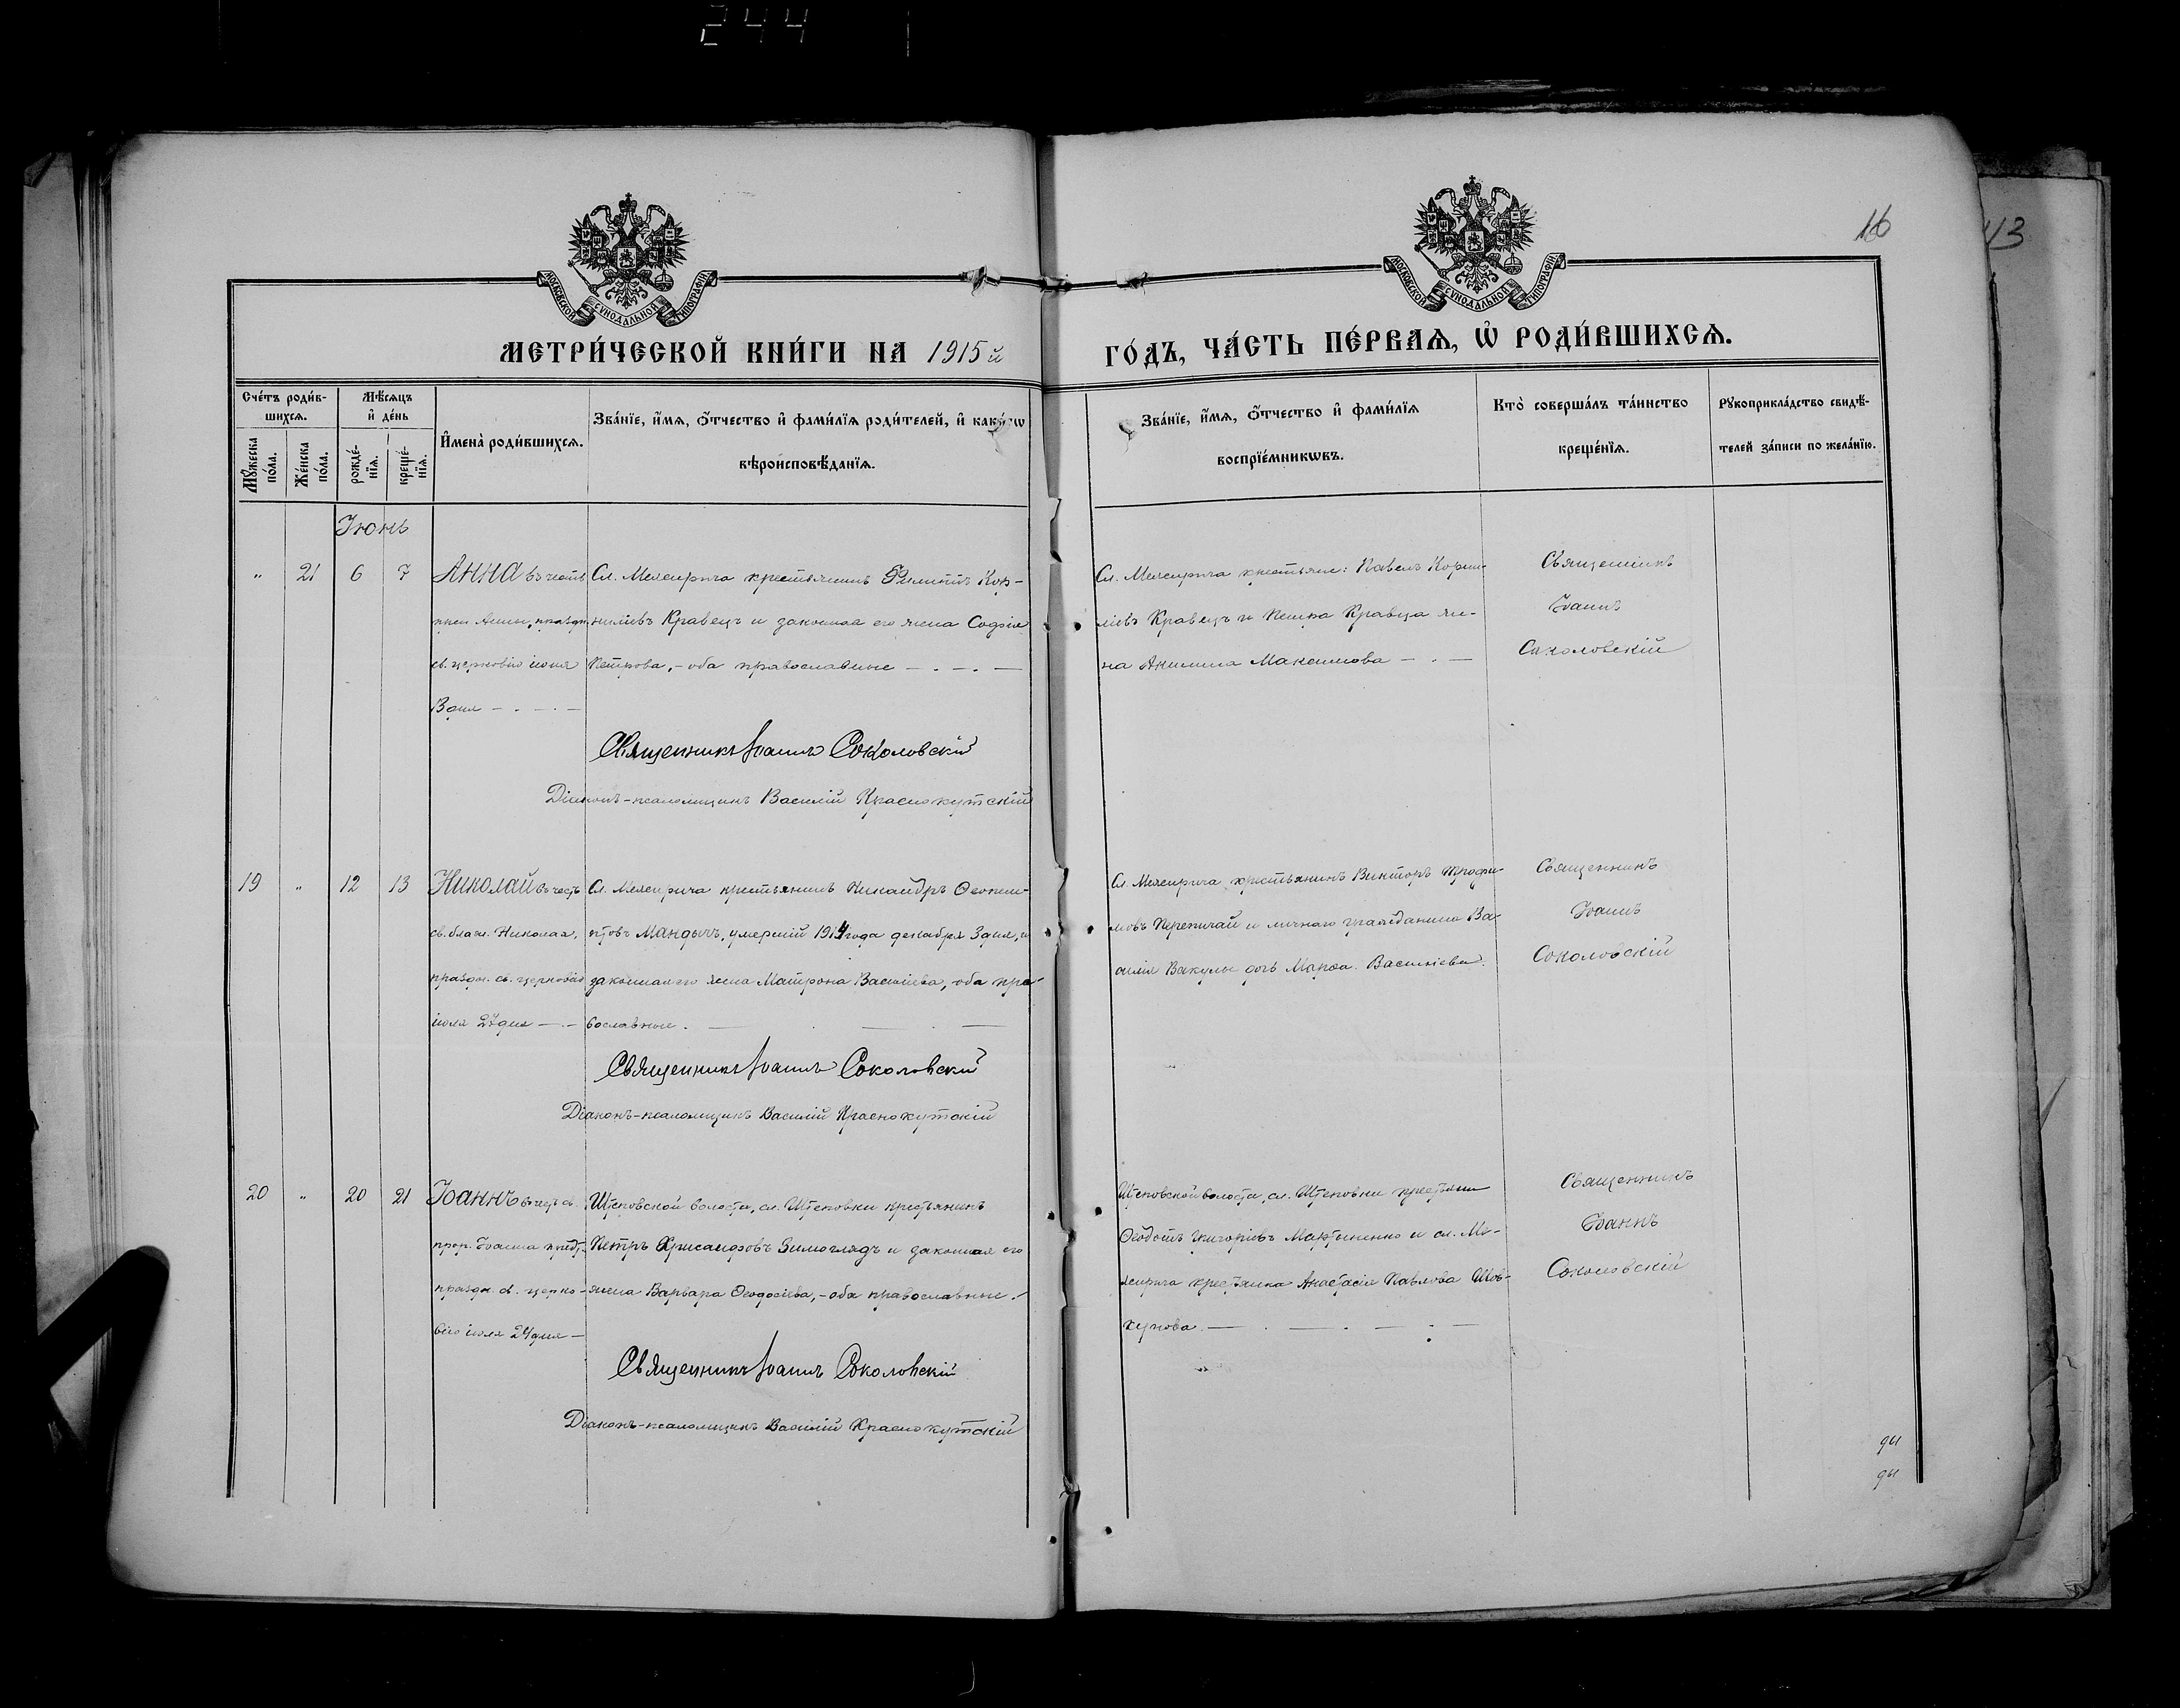 244
16
43
МОСКОВСКОЙ СУНОДАЛЬНОЙ ТИПОГРАФІИ
МОСКОВСКОЙ СУНОДАЛЬНОЙ ТИПОГРАФІИ
МЕТРИ́ЧЕСКОЙ КНИ́ГИ НА 1915 й
ГО́ДЪ, ЧА́СТЬ ПЕ́РВАѦ, Ѡ҆ РОДИ́ВШИХСѦ.
Сче́тъ роди́в-
шихсѧ.
Мꙋ́жеска
по́ла.
Же́нска
по́ла.
Мѣ́сѧцъ
и҆ де́нь
рожде́-
нїѧ.
креще́-
нїѧ.
И҆мена̀ роди́вшихсѧ.
Зва́нїе, и҆́мѧ, ѻ҆́тчество и҆ фами́лїѧ роди́телей, и҆ како́гѡ
вѣроисповѣ́данїѧ.
Зва́нїе, и҆́мѧ, ѻ҆́тчество и҆ фами́лїѧ
воспрїе́мникѡвъ.
Кто̀ соверша́лъ та́инство
креще́нїѧ.
Рꙋкоприкла́дство свидѣ́-
телей за́писи по жела́нїю.
Іюнь
„ 21 6 7
Анна въ честь
прав. Анны, праздн.
св. церковію іюля
дня — . — . —
Сл. Межирича крестьянинъ Филиппъ Кор-
ниліевъ Кравецъ и законная его жена Софія
Петрова, - оба православные — . — . —
Священникъ Іоаннъ Соколовскій
Діаконъ-псаломщикъ Василій Краснокутскій
Сл. Межирича крестьяне: Павелъ Корни-
ліевъ Кравецъ и Кравца же-
на Акилина Максимова — . —
Священникъ
Іоаннъ
Соколовскій
19 „ 12 13
Николай въ честь
св. блаж. Николая,
праздн. св. церковію
іюля 27 дня — . —
Сл. Межирича крестьянинъ Никандръ Ѳеокти-
стовъ Мандычъ, умершій 1914 года декабря 3 дня, и
законная его жена Матрона Васильева, - оба пра-
вославные . — . — . —
Священникъ Іоаннъ Соколовскій
Діаконъ-псаломщикъ Василій Краснокутскій
Сл. Межирича крестьянинъ Викторъ Трофи-
мовъ Перепичай и личнаго гражданина Ва-
силія Вакулы дочь Марѳа Васильева.
Священникъ
Іоаннъ
Соколовскій
20 „ 20 21
Іоаннъ въ честь св.
прор. Іоанна предт.
праздн. св. церко-
вію іюня 24 дня —
Штеповской волости, сл. Штеповки крестьянинъ
Петръ Хрисанфовъ Зимоглядъ и законная его
жена Варвара Ѳеодосіева, - оба православные. -
Священникъ Іоаннъ Соколовскій
Діаконъ-псаломщикъ Василій Краснокутскій
Штеповской волости, сл. Штеповки крестьянин
Ѳеодотъ Григоріевъ Мартыненко и сл. Ме-
жирича крестьянка Анастасія Павлова Шов-
кунова. — . — . — . —
Священникъ
Іоаннъ
Соколовскій